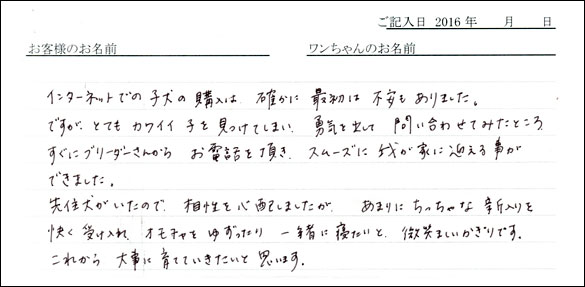 ご記入日 2016 年 月 日
お客様のお名前 ワンちゃんのお名前
インターネットでの子犬の購入は、確かに最初は不安もありました。
ですが、とてもカワイイ子を見つけてしまい、勇気を出して問い合わせてみたところ
すぐにブリーダーさんから お電話を頂き、スムーズに我が家に迎える事が
できました。
先住犬がいたので、相性を心配しましたが、あまりにちっちゃな新入りを
快く受け入れ、オモチャをゆずったり 一緒に寝たいと、微笑ましいかぎりです。
これから大事に育てていきたいと思います。